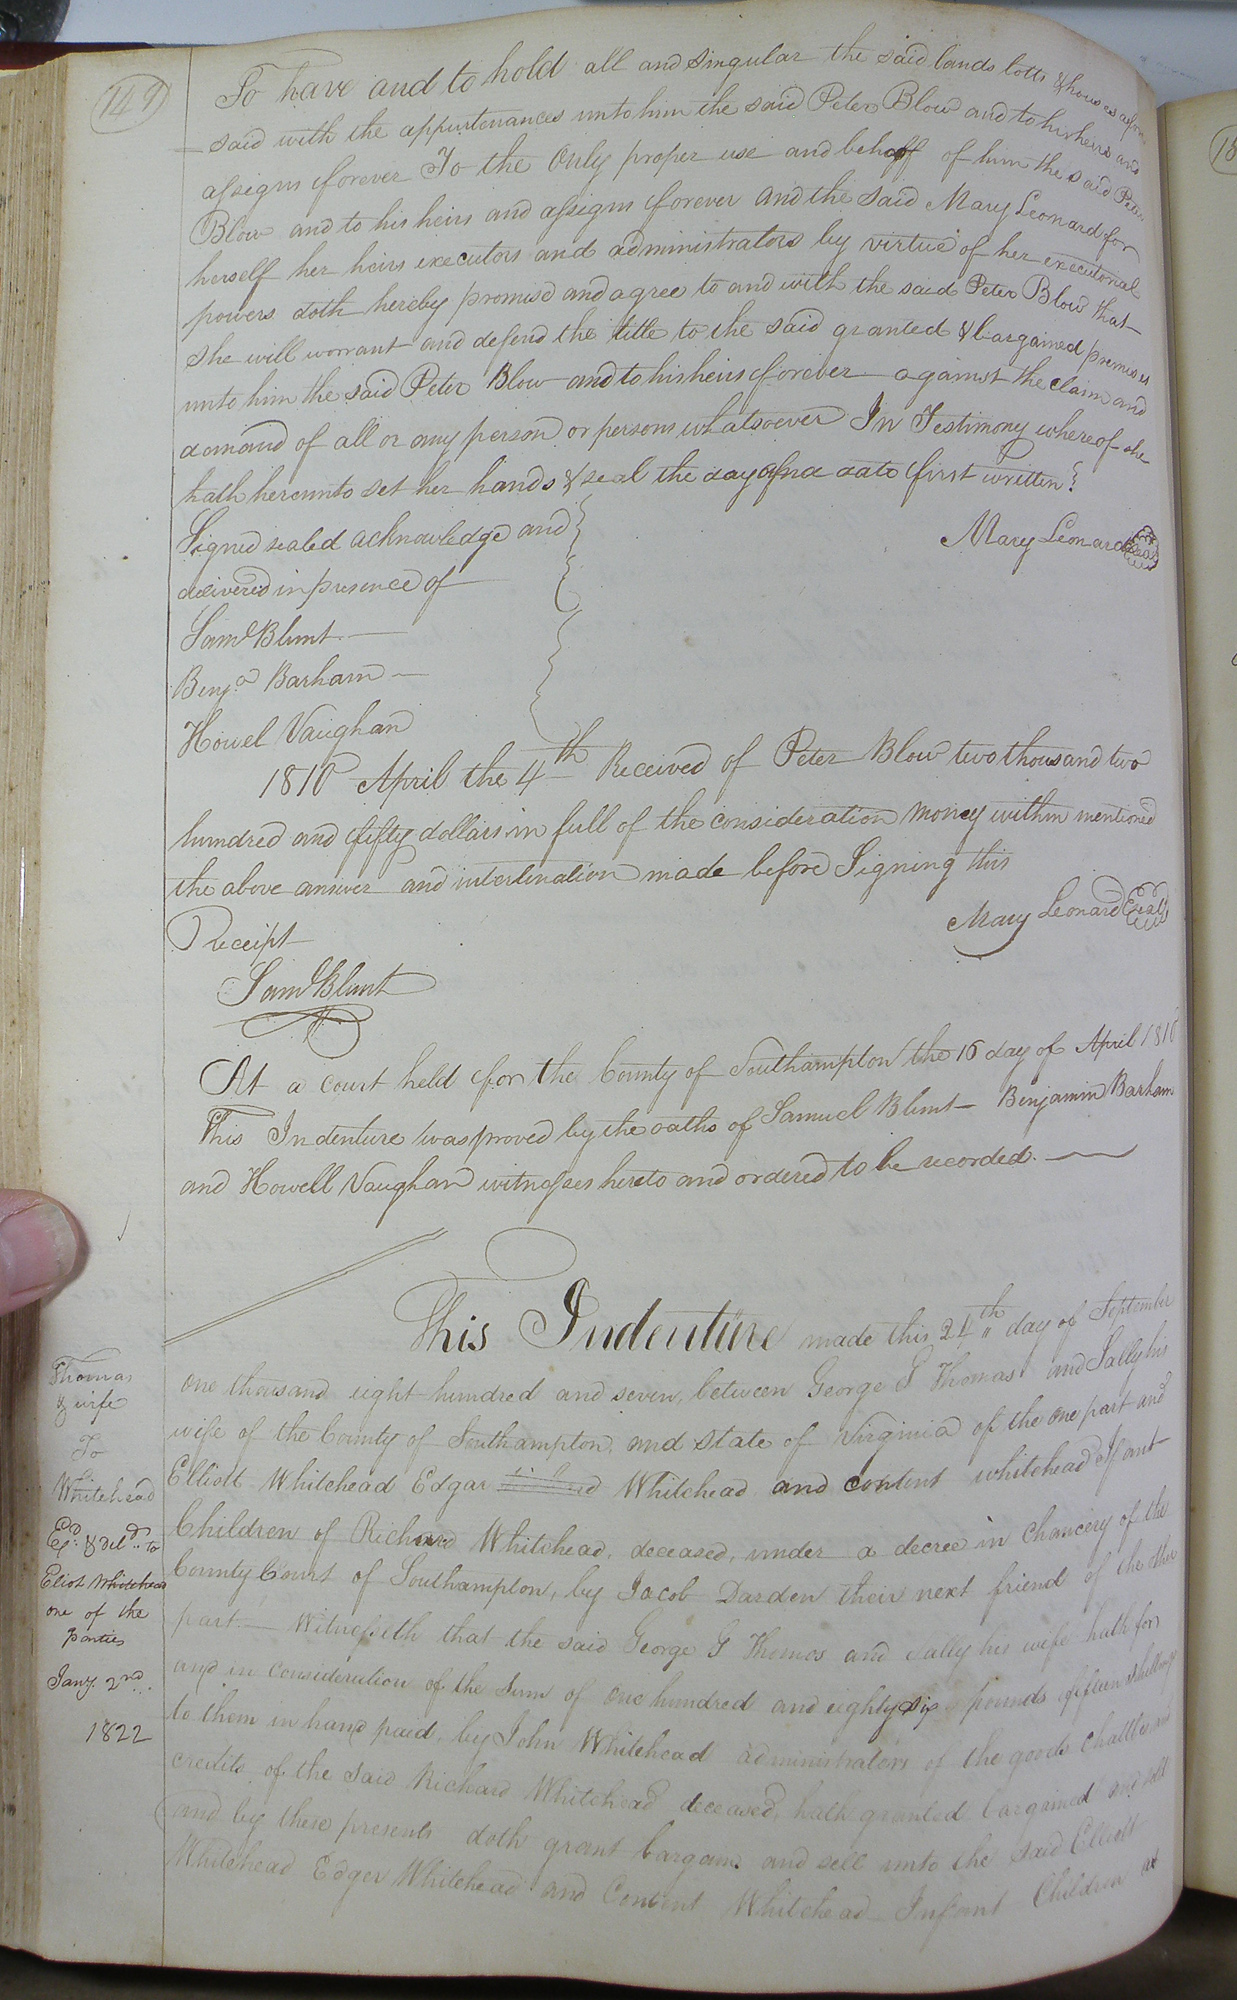 149
To have and to hold all and singular the said lands lotts & houses afore
said with the appurtenances unto him the said Peter Blow and to his heirs and
assigns forever To the Only proper use and behoff of him the said Peter
Blow and to his heirs and assigns forever and the said Mary Leonard for
herself her heirs executors and administrators by virtue of her executorial
powers doth hereby promise and agree to and with the said Peter Blow that
she will warrant and defend the title to the said granted & bargained premises
unto him the said Peter Blow and to his heirs forever against the claim and
demand of all or any person or persons whatsoever In Testimony whereof she
hath hereunto set her hands & seal the day and date first written
Signed sealed acknowledge and
Mary Leonard Seal
delivered in presence of
Saml Blunt
Benja Barham
Howel Vaughan
1810 April the 4th Received of Peter Blow two thousand two
hundred and fifty dollars in full of the consideration money within mentioned
the above answer and interlination made before Signing this
Receipt
Mary Leonard Seal
Saml Blunt
At a court held for the County of Southampton the 16 day of April 1810
This Indenture was proved by the oaths of Samuel Blunt Benjamin Barham
and Howell Vaughan witnesses hereto and ordered to be recorded.
This Indenture made this 24th day of September
one thousand eight hundred and seven, between George Thomas and Sally his
wife of the County of Southampton and state of Virginia of the one part and
Elliott Whitehead Edgar Whitehead and content whitehead Ifant
Children of Richard Whitehead, deceased, under a decree in Chancery of the
County Court of Southampton, by Jacob Darden their next friend of the other
part. Witnesseth that the said George G Thomas and Sally his wife hath for
and in consideration of the Sum of One hundred and eighty six pounds fifteen shillings
to them in hand paid, by John Whitehead administrators of the goods chattles and
credits of the said Richard Whitehead deceased, hath granted bargained and sold
and by these presents doth grant bargain and sell unto the said Elliott
Whitehead Edger Whitehead and Content Whitehead Infant Children as
Thomas
& wife
To
Whitehead
Exd. & Deld. to
Eliot Whitehead
one of the
parties
Jany. 2nd.
1822